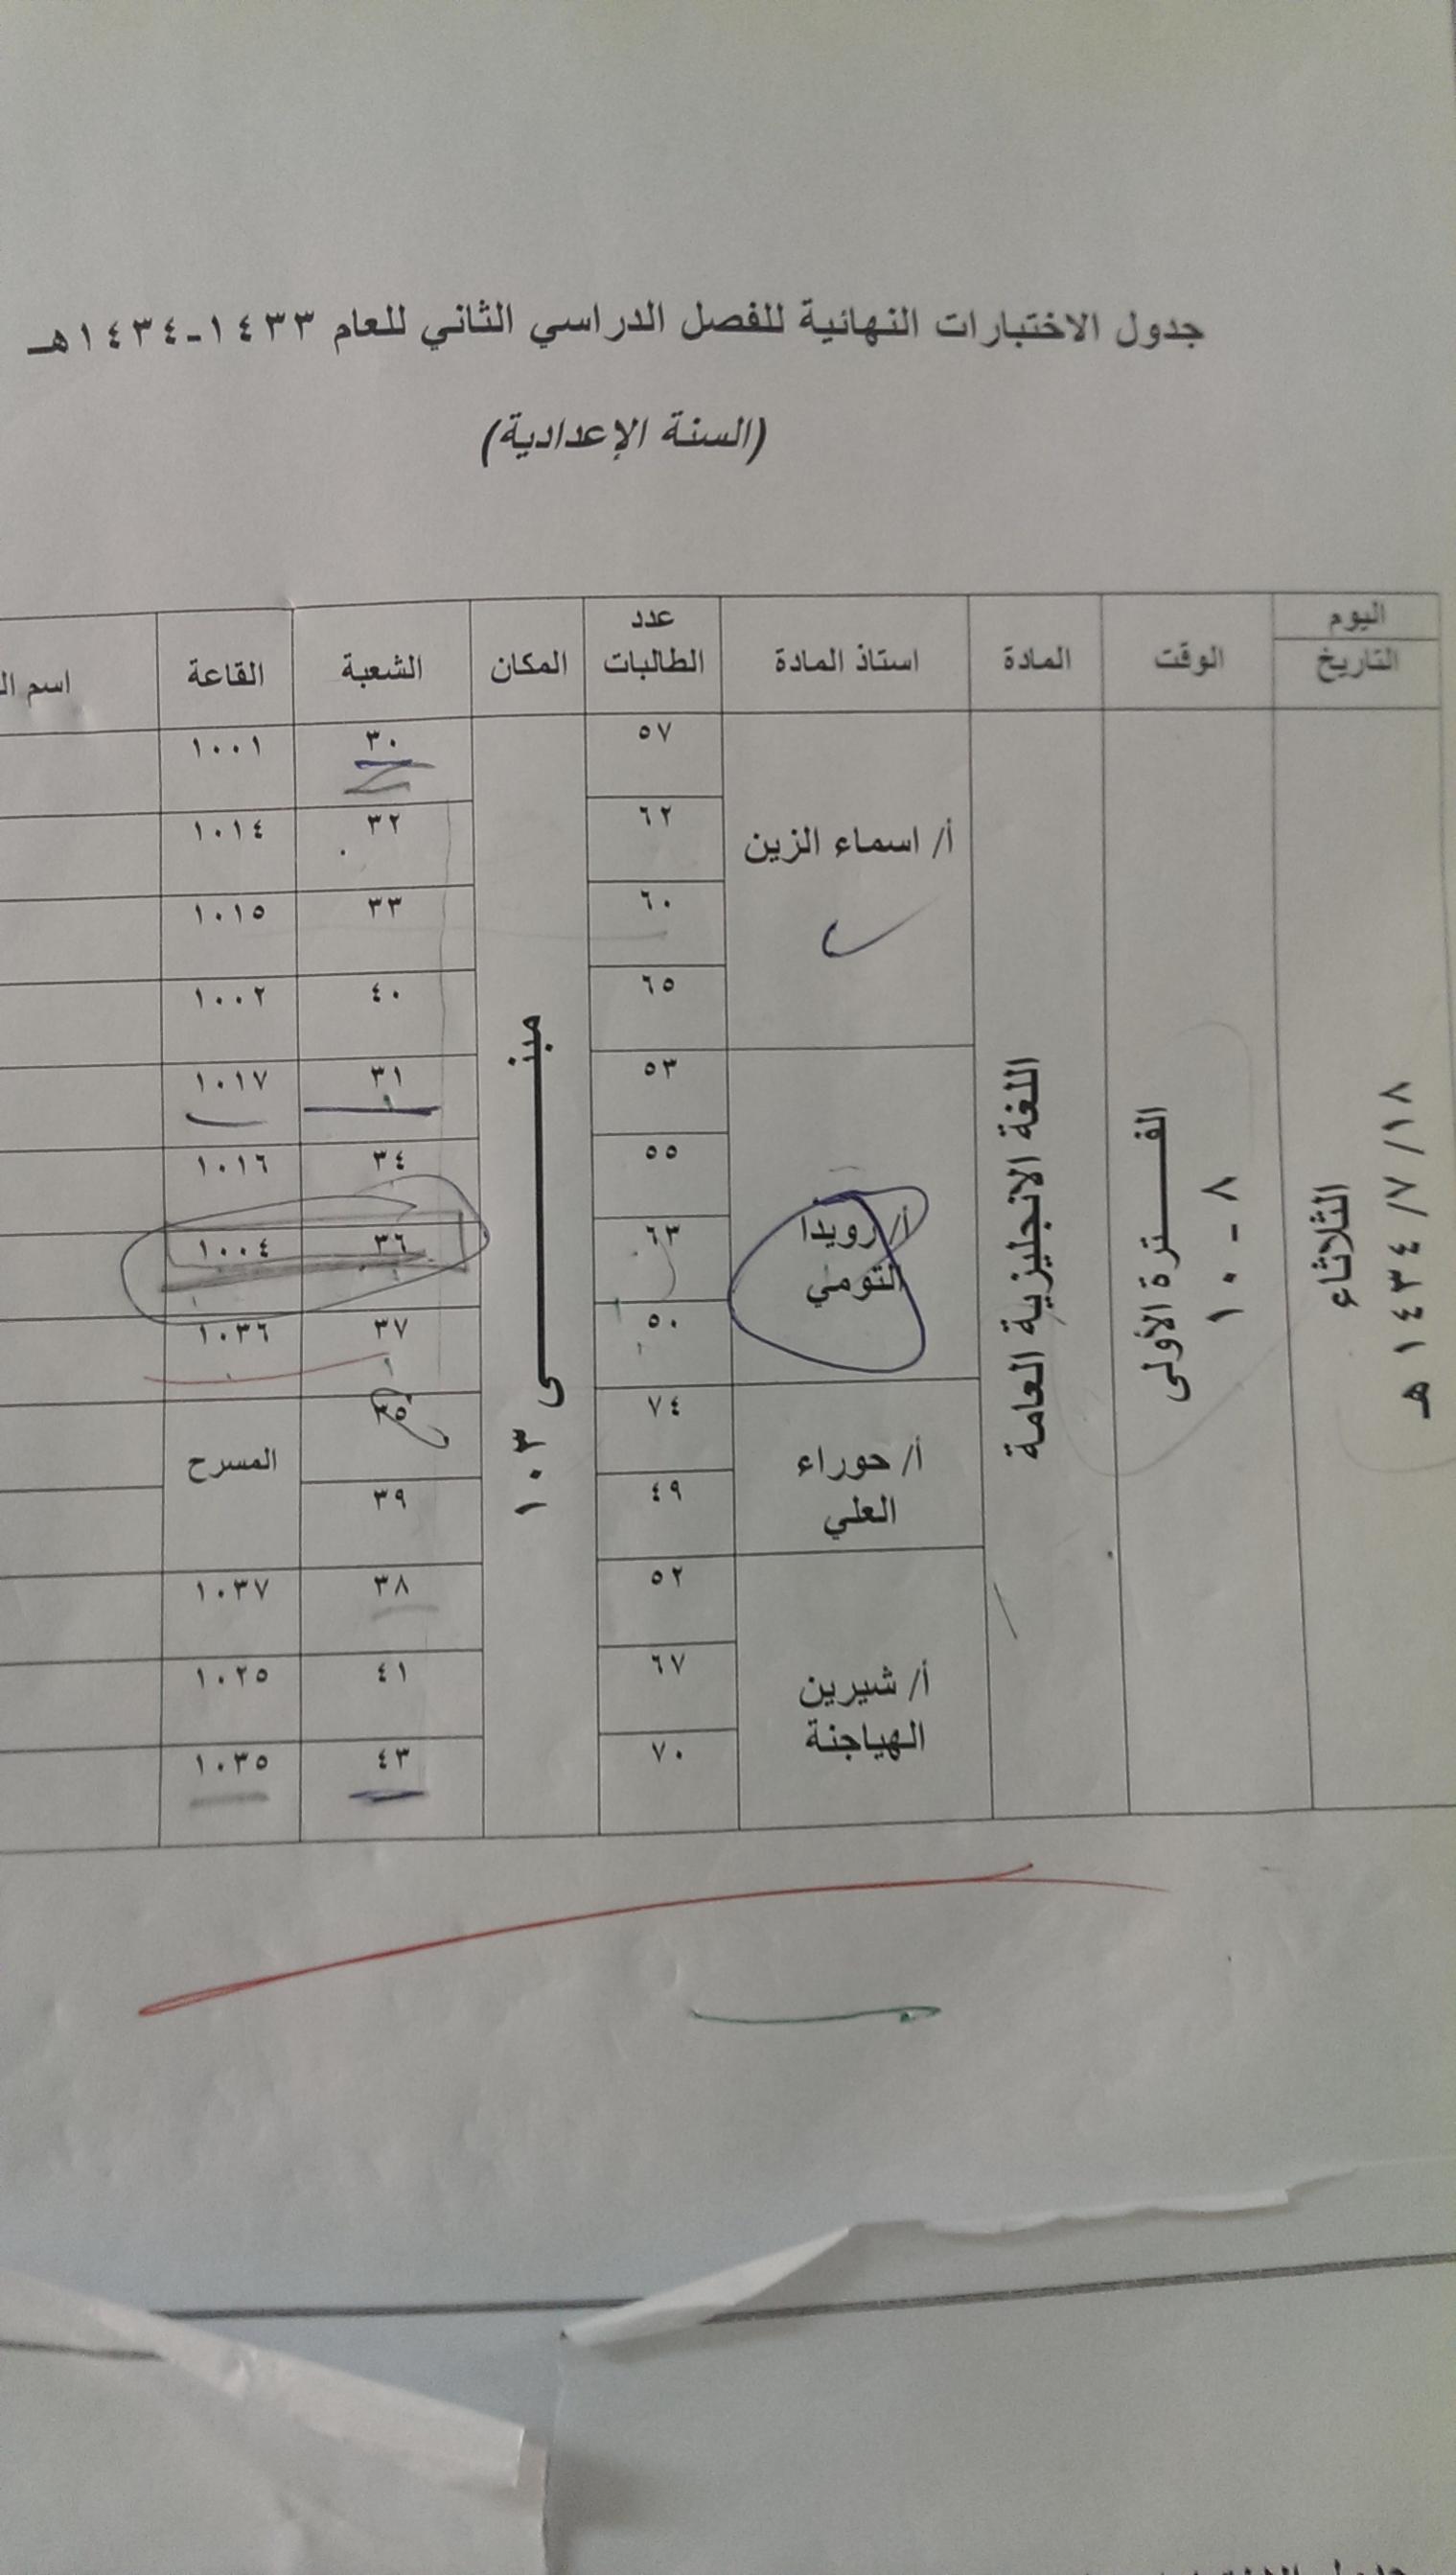 جدول الاختبارات النهائية للفصل الدراسي الثاني للعام ١٤٣٣-١٤٣٤هـ
(السنة الإعدادية)
اليوم
التاريخ
الوقت
المادة
استاذ المادة
عدد
الطالبات
المكان
الشعبة
القاعة
اسم
الثلاثاء
١٨/ ٧/ ١٤٣٤ هـ
الفـــترة الأولى
٨ - ١٠
اللغة الانجليزية العامة
مبنـــى ١٠٣
أ/ اسماء الزين
٥٧ ٣٠ ١٠٠١
٦٢ ٣٢ ١٠١٤
٦٠ ٣٣ ١٠١٥
٦٥ ٤٠ ١٠٠٢
أ/ رويدا
التومي
٥٣ ٣١ ١٠١٧
٥٥ ٣٤ ١٠١٦
٦٣ ٣٦ ١٠٠٤
٥٠ ٣٧ ١٠٣٦
أ/ حوراء
العلي
٧٤ ٣٥ المسرح
٤٩ ٣٩
أ/ شيرين
الهياجنة
٥٢ ٣٨ ١٠٣٧
٦٧ ٤١ ١٠٢٥
٧٠ ٤٣ ١٠٣٥